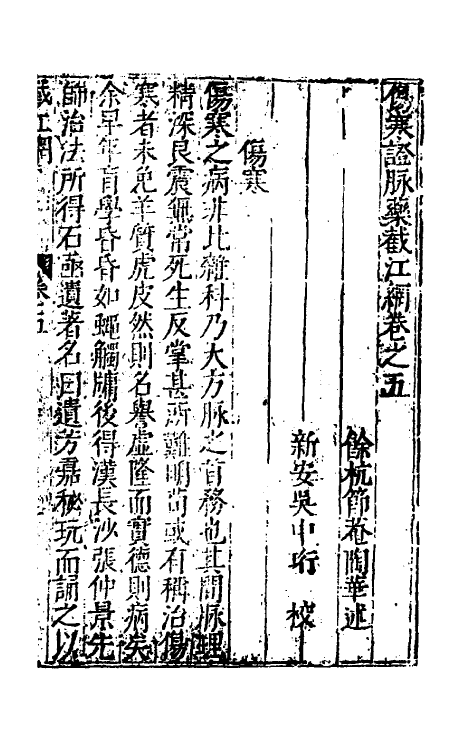 傷寒證脉藥截江綱卷之五
餘杭節菴陶華述
新安吳中珩 校
傷寒
傷寒之病非比雜科乃大方脉之首務也其間脉理
精深良震無常死生反掌甚所難明尚或有稱治傷
寒者未免羊質虎皮然則名譽虛隆而實德則病矣
余早年盲學昏昏如蠅觸牖後得漢長沙張仲景先
師治法所得石函遺著名曰遺方嘉秘玩而誦之以
截江綱 卷五